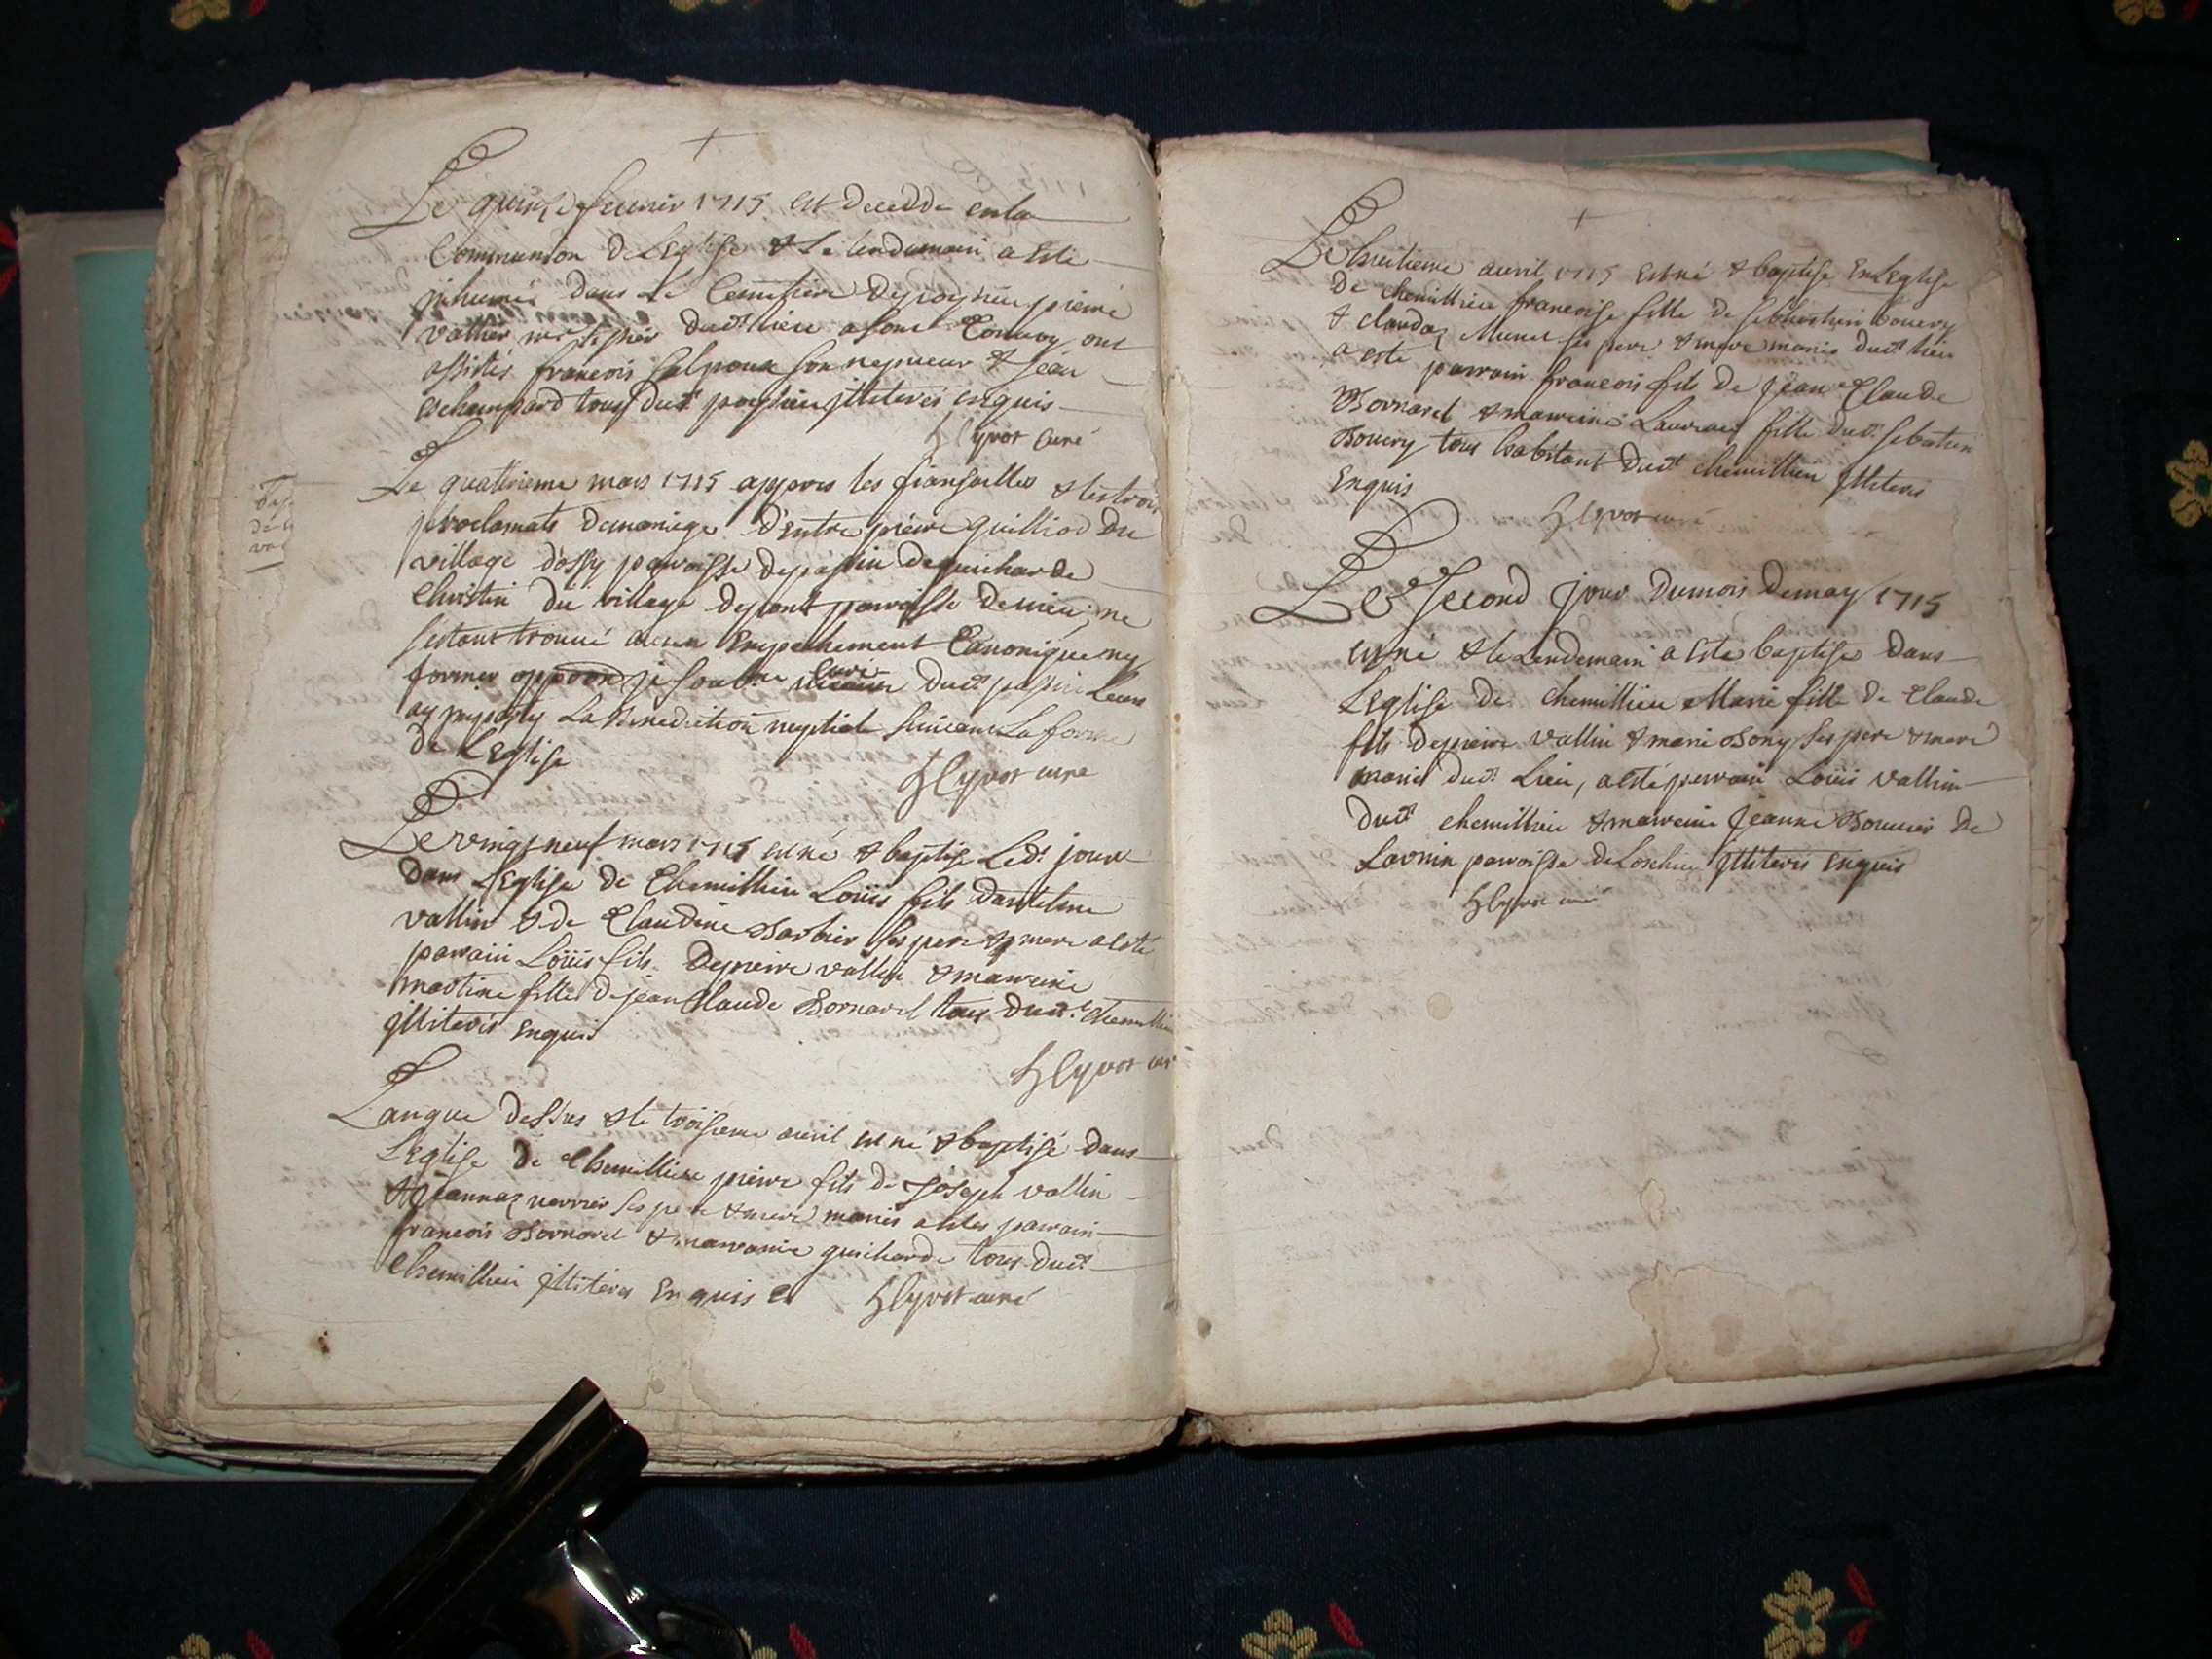 Le quinze feurier 1715 est decedde en la
Communion de L'Eglise & le lendemain a esté
inhumé dans le Cemetiere pierre
vallier duct lieu a son Conuoy ont
assistés francois son nepueur & Jean
tous duct illiterés enquis
Hlyvot curé
Le quattrieme mars 1715 appres les fiansailles & les trois
proclamats de mariage d'entre pierre guilliod du
village d'ossy paroisse de passin & guicharde
Christin du village de pont paroisse de uieu, ne
s'estant trouué aucun Empechement Canonique ny
former oppoon je soubne curé duct passin Leurs
ay La Benediction nuptiale suiuant La forme
de L'Eglise
Hlyvot curé
bap
de
val
Le vingt neuf mars 1715 est né & baptisé Ledt jour
dans L'Eglise de Chemillieu Loüis fils d'antelme
vallin & de Claudine Barbier ses pere & mere a esté
parrain Loüis fils de pierre vallin & marreine
martine fille de jean Claude Bornarel tous duct chemillieu
illiterés enquis
Hlyvot curé
L'an que dessus & le troisieme auril est né & baptisé dans
L'eglise de Chemillieu pierre fils de Joseph vallin
& jeannaz verrier ses pere & mere mariés a estes parrain
francois Bornarel & marraine guicharde tous duct
Chemillieu illiterés Enquis
Hlyvot curé
Le huitieme auril 1715 est né & baptisé En L'Eglise
de chemillieu francoise fille de sebastien bouery
& claudaz Munet ses pere & mere mariés duct lieu
a esté parrain francois fils de Jean Claude
Bornarel & marreine Laurence fille duct sebastien
Bouery tous habitant duct chemillieu illiterés
Enquis
Hlyvot curé
Le second jour du mois de may 1715
est né & le Lendemain a esté baptisé dans
L'Eglise de chemillieu Marie fille de Claude
fils de pierre vallin & marie Bony ses pere & mere
mariés duct Lieu, a esté parrain Loüis vallin
duct chemillieu & marreine Jeanne de
paroisse de illiterés enquis
Hlyvot curé